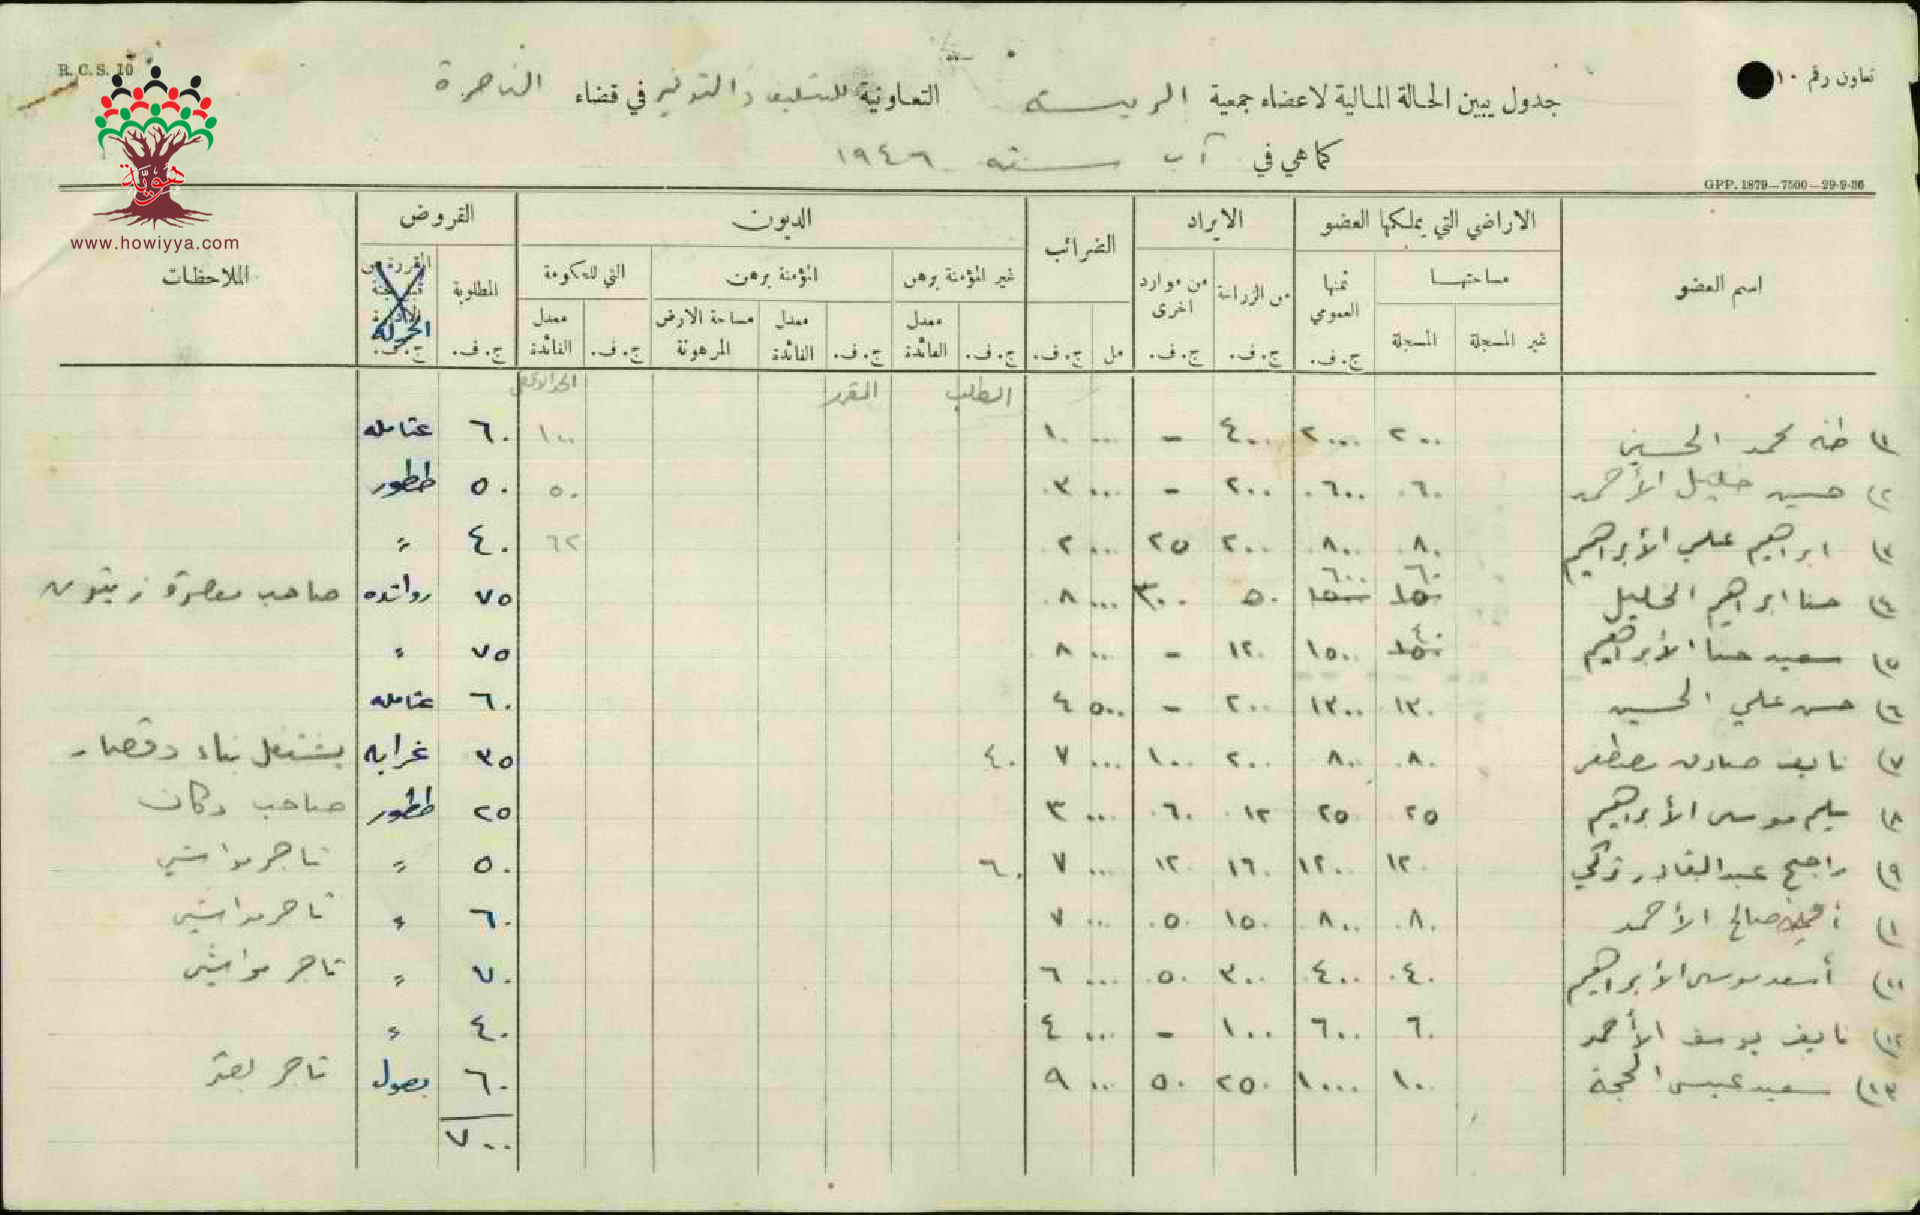 R. C. S. 10
تعاون رقم ١٠
جدول يبين الحالة المالية لاعضاء جمعية الرينه التعاونية للتسليف والتوفير في قضاء الناصرة
كما هي في آب سنة ١٩٤٦
GPP. 1879—7500—29-9-36
هوية
www.howiyya.com
اسم العضو الاراضي التي يملكها العضو الايراد الضرائب الديون القروض الملاحظات
مساحتها ثمنها العمومي من الزراعة من موارد اخرى غير المؤمنة برهن المؤمنة برهن التي للحكومة المطلوبة المقررة من
غير المسجلة المسجلة ج. ف. ج. ف. ج. ف. مل ج. ف. ج. ف. معدل الفائدة ج. ف. معدل الفائدة مساحة الارض المرهونة ج. ف. معدل الفائدة ج. ف. ج. ف.
الطلب المقرر
١) طه محمد الحسين ٢٠٠ ٢٠٠٠ ٤٠٠ - ... ١٠ ١٠٠ ٦٠ عتامله
٢) حسين خليل الأحمد ٦٠ ٦٠٠ ٢٠٠ - ... ٣ ٥٠ ٥٠ طاطور
٣) ابراهيم علي الأبراهيم ٨٠ ٨٠٠ ٢٠٠ ٢٥ ... ٢ ٦٢ ٤٠ "
٤) حنا ابراهيم الخليل ١٥٠ ٦٠ ١٥٠٠ ٦٠٠ ٥٠ ٣٠٠ ... ٨ ٧٥ صاحب معصرة زيتون
٥) سعيد حنا الأبراهيم ١٥٠ ١٥٠٠ ١٢٠ - ... ٨ ٧٥ "
٦) حسن علي الحسين ١٣٠ ١٣٠٠ ٢٠٠ - ٥٠٠ ٤ ٦٠ عتامله
٧) نايف صادق مصطفى ٨٠ ٨٠٠ ٢٠٠ ١٠٠ ... ٧ ٤٠ ٣٥ غرابه يشتغل بناء وقصار
٨) سليم موسى الأبراهيم ٢٥ ٢٥ ١٢ ٦٠ ... ٣ ٢٥ طاطور صاحب دكان
٩) راجح عبد القادر زكي ١٢٠ ١٢٠٠ ١٦٠ ١٢٠ ... ٧ ٦٠ ٥٠ " تاجر مواشي
١٠) صالح الأحمد ٨٠ ٨٠٠ ١٥٠ ٥٠ ... ٧ ٦٠ " تاجر مواشي
١١) أسعد موسى الأبراهيم ٤٠ ٤٠٠ ٣٠٠ ٥٠ ... ٦ ٧٠ " تاجر مواشي
١٢) نايف يوسف الأحمد ٦٠ ٦٠٠ ١٠٠ - ... ٤ ٤٠ "
١٣) سعيد عيسى الحجة ١٠٠ ١٠٠٠ ٢٥٠ ٥٠ ... ٩ ٦٠ بصول تاجر بقر
٧٠٠